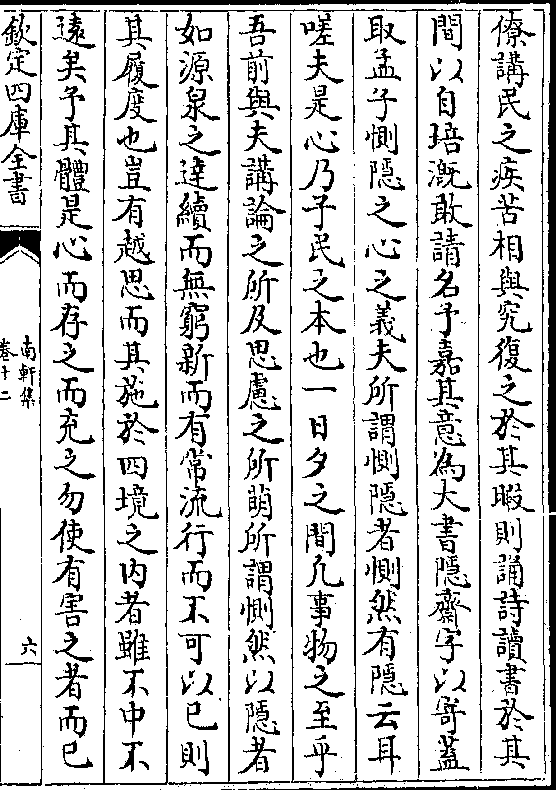 僚講民之疾苦相與究復之於其暇則誦詩讀書於其
間以自培漑敢請名予嘉其意為大書隱齋字以寄蓋
取孟子惻隱之心之義夫所謂惻隱者惻然有隱云耳
嗟夫是心乃子民之本也一日夕之間凡事物之至乎
吾前與夫講論之所及思慮之所萌所謂惻然以隱者
如源泉之達續而無窮新而有常流行而不可以已則
其履度也豈有越思而其施於四境之内者雖不中不
逺矣予其體是心而存之而充之勿使有害之者而已
欽定四庫全書
南軒集
卷十二
六